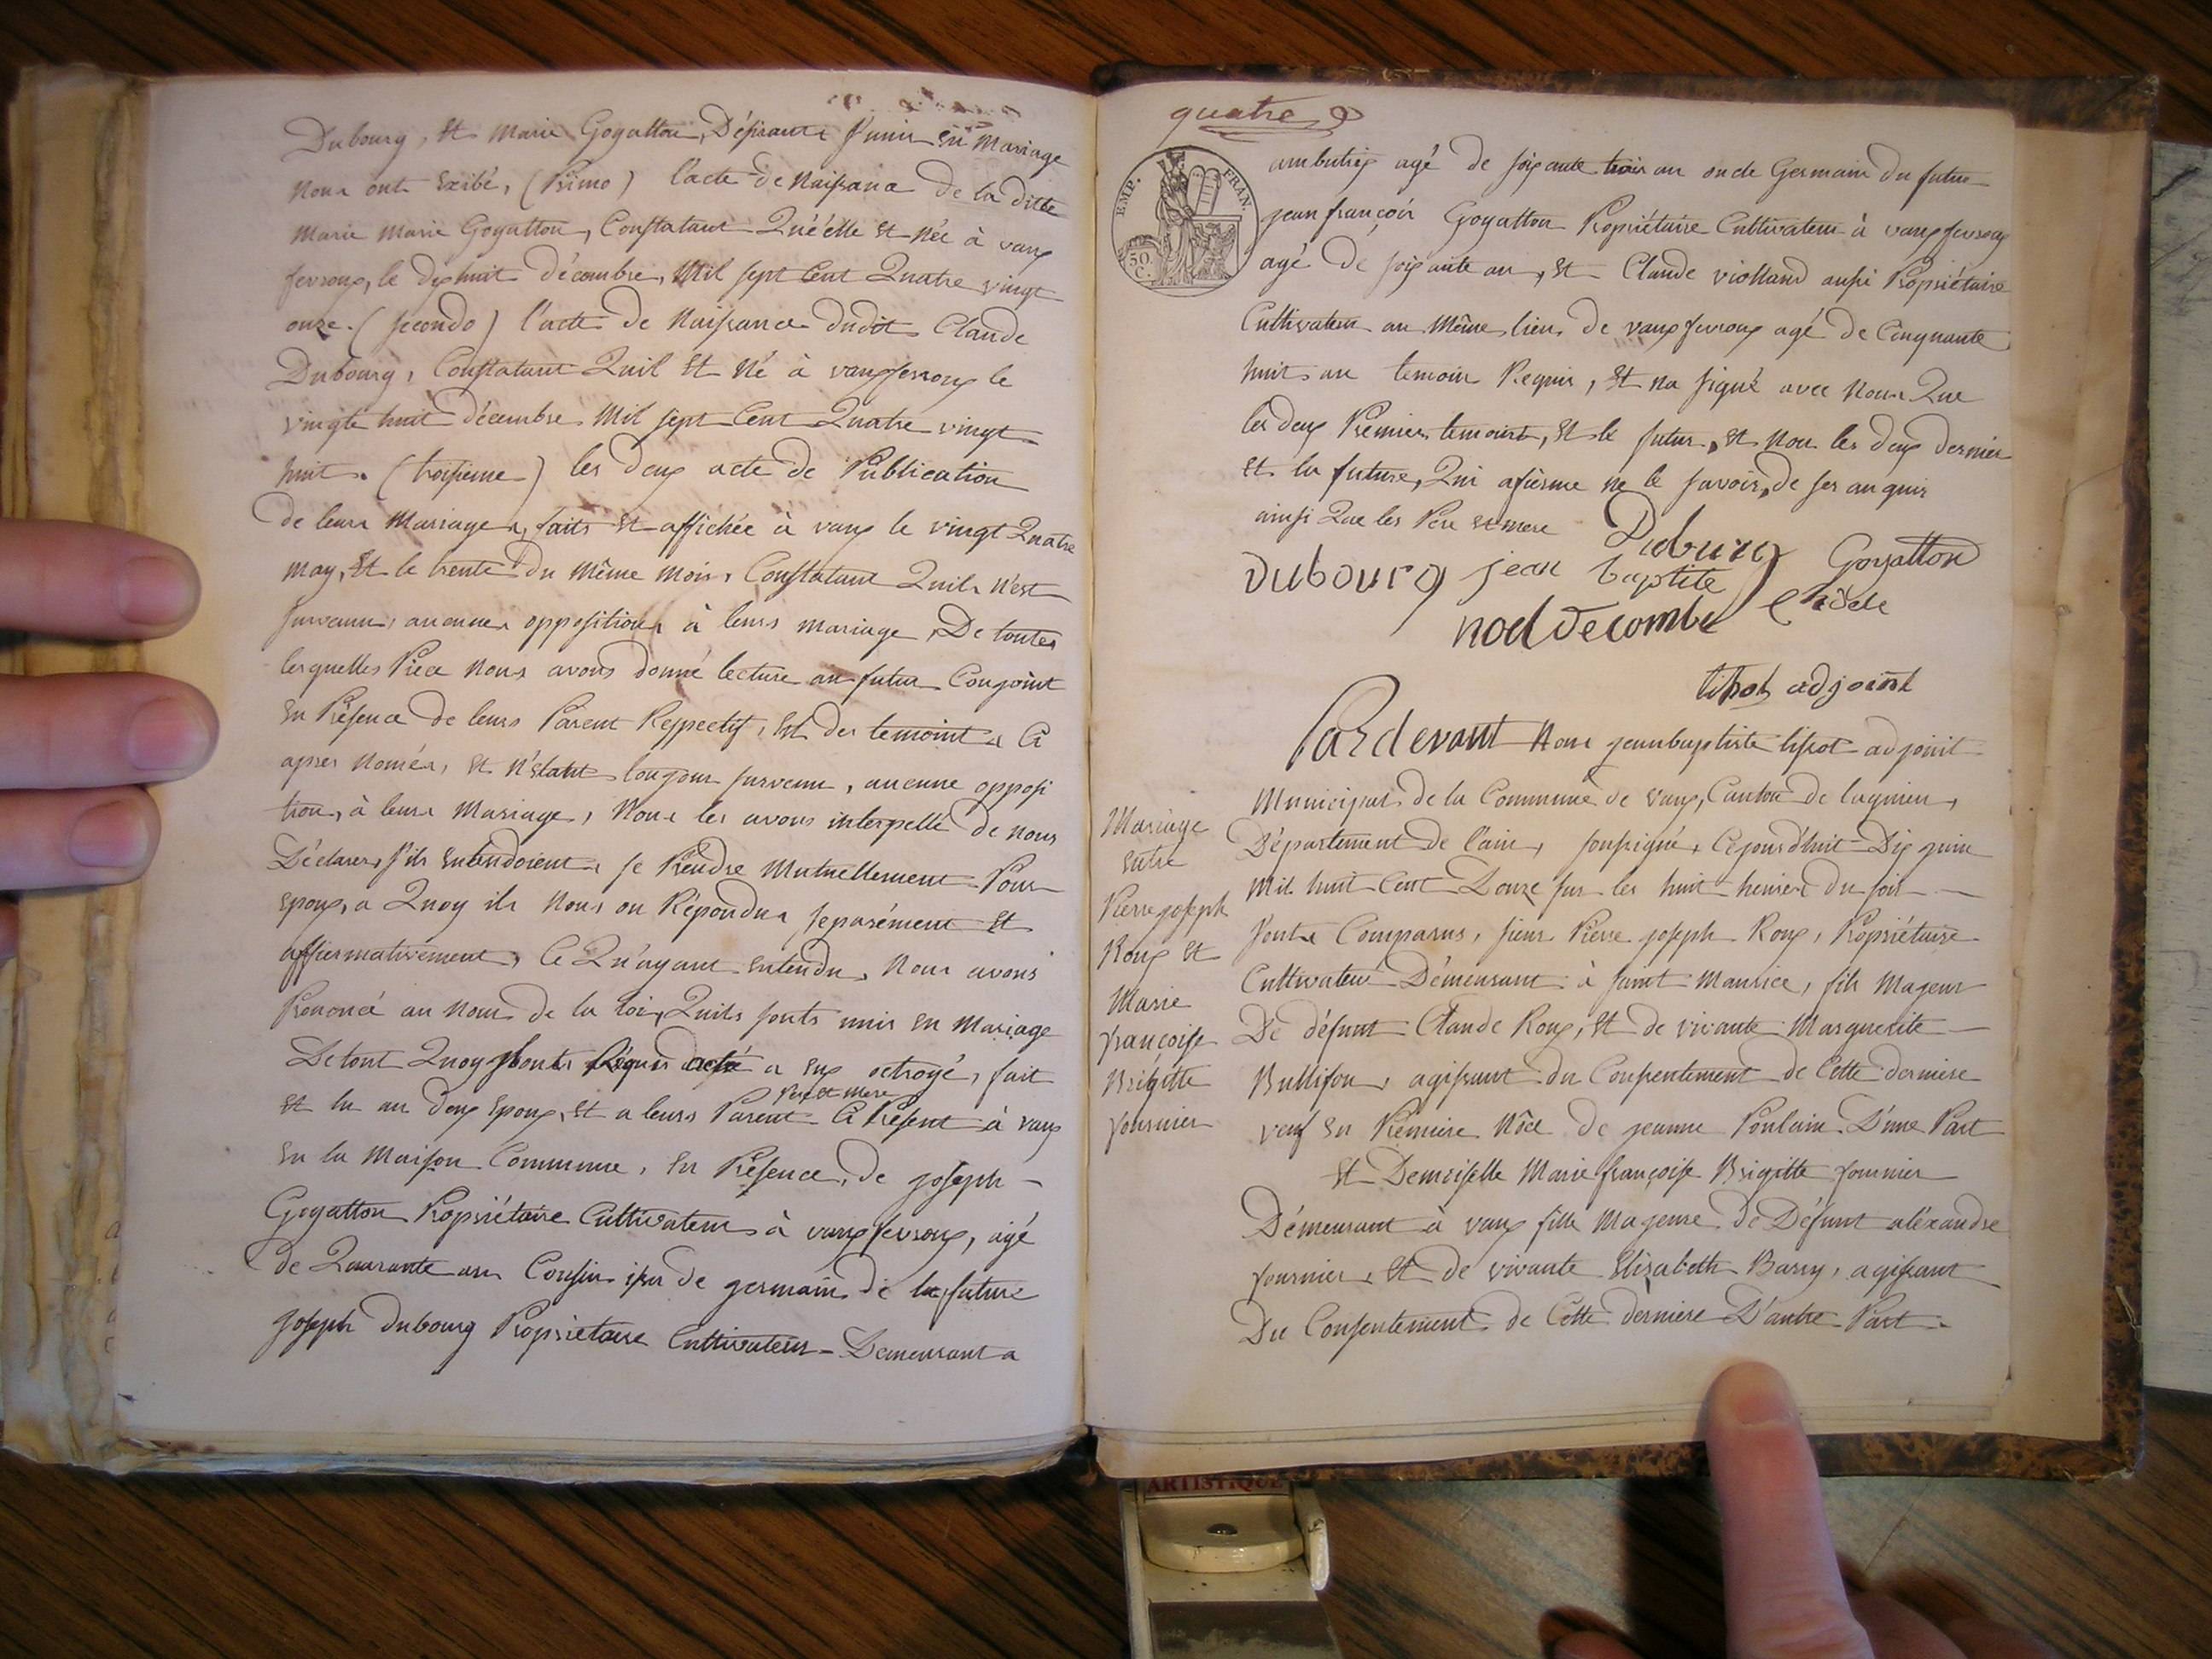 Dubourg, Et Marie Goyatton, Désirants s'unir En Mariage
Nous ont Exibé, (Primo) l'acte de Naissance de la ditte
Marie Marie Goyatton, Constatant Qu'éelle Et Née à vaux
fevroux, le dixhuit décembre, Mil sept Cent Quatre vingt
onze. (secondo) l'acte de Naissance dudit Claude
Dubourg, Constatant Quil Et Né à vauxfevroux le
vingte huit décembre Mil sept Cent Quatre vingt
huit. (troisieme) les deux acte de Publication
de leurs Mariages, faits Et affichée à vaux le vingt Quatre
may, Et le trente du Même Mois, Constatant Quils N'est
survenu, aucunes oppositions à leurs mariage, De toutes
lesquelles Piece Nous avons donné lecture au futur Conjoint
En Présence de leurs Parent Respectif, Et des temoints Ci
apres Només, Et N'étant toujour survenu, aucune opposi
tion, à leurs Mariage, Nous les avons interpellé de nous
Déclarer, s'ils Entendoient, se Prendre Mutuellement Pour
Epoux, a Quoy ils Nous on Répondus separément Et
affirmativement, Ce Qu'ayant Entendu, Nous avons
Prononcé au Nom de la loi, Quils sonts unis En Mariage
De tout Quoy Requis acte a Eux octroyé, fait
Pere et mere
Et lu au deux Epoux, Et a leurs Parent Ci Présent à vaux
En la Maison Commune, En Présence, de joseph -
Goyatton Propriétaire Cultivateur à vauxfevroux, agé
de Quarante ans Cousin issu de germain de la future
joseph Dubourg Propriétaire Cultivateur - Demeurant a
quatre
EMP. FRAN.
50. C.
ambutrix agé de soixante trois an oncle Germain du futur
jean françois Goyatton Propriétaire Cultivateur à vauxfevroux
agé de soixante an, Et Claude violland aussi Propriétaire
Cultivateur au Même lieu de vauxfevroux agé de Cinquante
huit an temoin Requis, Et na signé avec Nous Que
les deux Premiers temoints, Et le futur, Et Non les deux dernier
Et la future, Qui afirme ne le savoir, de ses anquis
ainsi Que les Pere Et mere
Dubourg
Dubourg jean baptite Goyatton
noel decombe
tissot adjoint
Pardevant Nous jeanbaptiste tissot adjoint
Municipal de la Commune de vaux, Canton de lagnieu,
Département de l'ain, soussigné, Cejourd'huit Dix juin
Mil huit Cent Douze sur les huit heures du soir
Mariage
Entre
Pierre joseph
Roux Et
Marie
françoise
Brigitte
fournier
sonts Comparus, sieur Pierre joseph Roux, Propriétaire
Cultivateur Démeurant à saint Maurice, fils Mageur
De défunt Claude Roux, Et de vivante Marguerite
Bullifon, agissant du Consentement de Cette derniere
veuf En Premiere Nôce de jeanne Poulain D'une Part
Et Demoiselle Marie françoise Brigitte fournier
Démeurant à vaux fille Mageure de Défunt aléxandre
fournier, Et de vivante Elisabeth Barry, agissant
Du Consentement de Cette derniere D'autre Part -